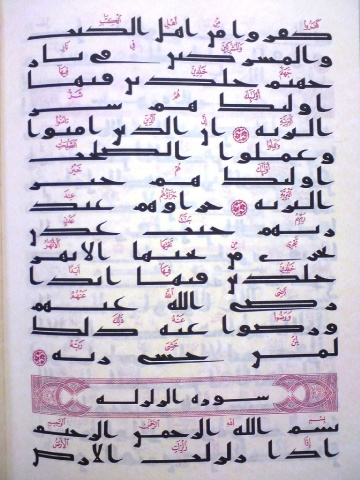 كفروا من اهل الكتب
والمشركين في نار
جهنم خلدين فيها
اولئك هم شر
البرية ان الذين امنوا
وعملوا الصلحت
اولئك هم خير
البرية جزاوهم عند
ربهم جنت عدن
تجري من تحتها الانهر
خلدين فيها ابدا
رضي الله عنهم
ورضوا عنه ذلك
لمن خشي ربه
سورة الزلزلة
بسم الله الرحمن الرحيم
اذا زلزلت الارض